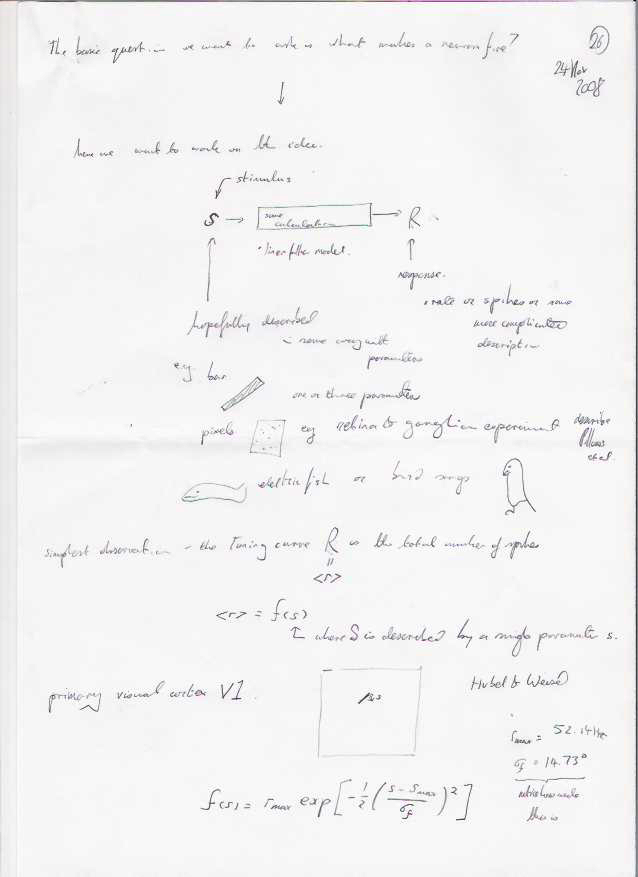 The basic question we want to ask is what makes a neuron fire?
26
24 Nov
2008
here we want to work on the idea.
stimulus
S → some calculation → R
• linear filter model.
response.
• rate or spikes or some
more complicated
description
hopefully described
in some way with
parameters
e.g. bar
one or three parameters
pixels eg retina to ganglion experiment
describe
et al.
electric fish or bird songs
simplest observation - the Tuning curve R is the total number of spikes
=
<r>
<r> = f(s)
where S is described by a single parameter s.
primary visual cortex V1.
Hubel & Wiesel
r_max = 52.14Hz
σ_f = 14.73°
this is
f(s) = r_max exp[-1/2((s - s_max)/σ_f)^2]